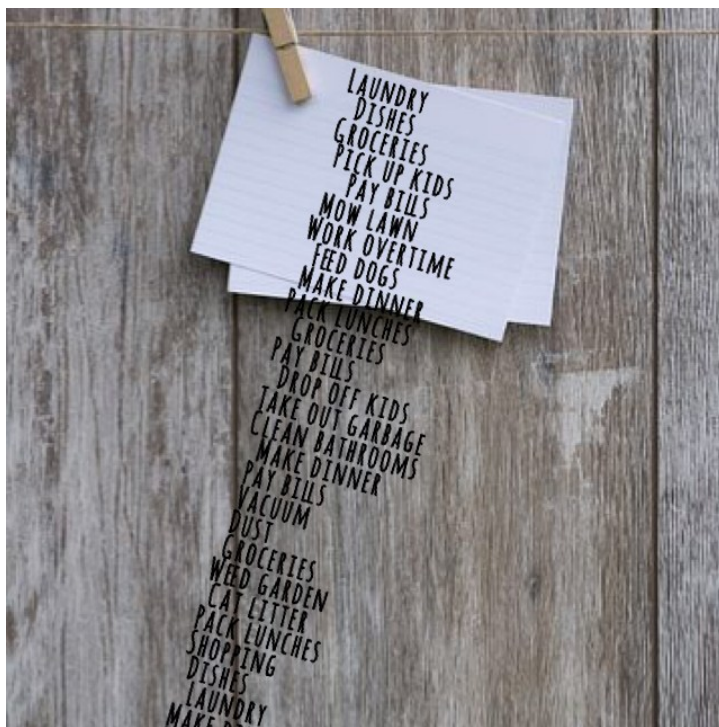 LAUNDRY
DISHES
GROCERIES
PICK UP KIDS
PAY BILLS
MOW LAWN
WORK OVERTIME
FEED DOGS
MAKE DINNER
PACK LUNCHES
GROCERIES
PAY BILLS
DROP OFF KIDS
TAKE OUT GARBAGE
CLEAN BATHROOMS
MAKE DINNER
PAY BILLS
VACUUM
DUST
GROCERIES
WEED GARDEN
CAT LITTER
PACK LUNCHES
SHOPPING
DISHES
LAUNDRY
MAKE